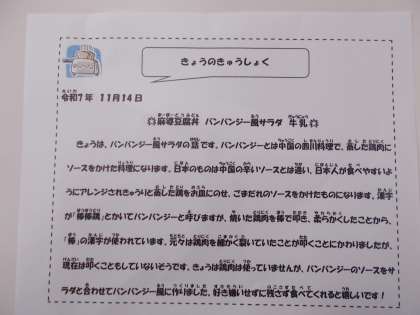 きょうのきゅうしょく
令和7年 11月14日
麻婆豆腐丼 バンバンジー風サラダ 牛乳
きょうは、バンバンジー風サラダの話です。バンバンジーとは中国の四川料理で、蒸した鶏肉に
ソースをかけた料理になります。日本のものは中国の辛いソースとは違い、日本人が食べやすいよ
うにアレンジされきゅうりと蒸した鶏をお皿にのせ、ごまだれのソースをかけたものになります。漢字
が「棒棒鶏」とかいてバンバンジーと呼びますが、焼いた鶏肉を棒で叩き、柔らかくしたことから、
「棒」の漢字が使われています。元々は鶏肉を細かく裂いていたことが叩くことにかわりましたが、
現在は叩くこともしていないそうです。きょうは鶏肉は使っていませんが、バンバンジーのソースをサ
ラダと合わせてバンバンジー風に作りました。好き嫌いせずに残さず食べてくれると嬉しいです！